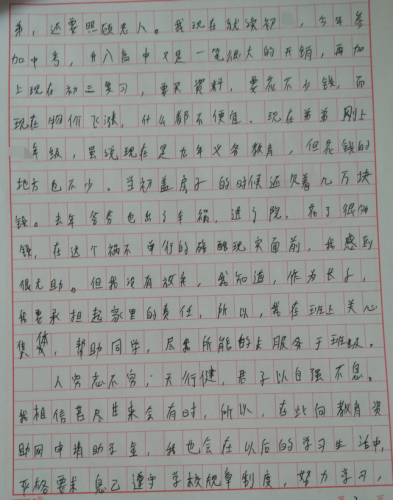 弟，还要照顾老人。我现在就读初，今年参
加中考，升入高中又是一笔很大的开销，再加
上现在初三复习，要买资料，要花不少钱，而
现在物价飞涨，什么都不便宜。现在弟弟刚上
年级，虽说现在是九年义务教育，但花钱的
地方也不少。当初盖房子的时候还欠着几万块
钱。去年爷爷也出了车祸，进了院，花了很多
钱，在这个祸不单行的残酷现实面前，我感到
很无助。但我没有放弃，我知道，作为长子，
我要承担起家里的责任，所以，我在班上关心
集体，帮助同学，尽我所能的去服务于班级。
人穷志不穷；天行健，君子以自强不息。
我相信苦尽甘来会有时，所以，在此向教育资
助网申请助学金，我也会在以后的学习生活中，
严格要求自己遵守学校规章制度，努力学习，